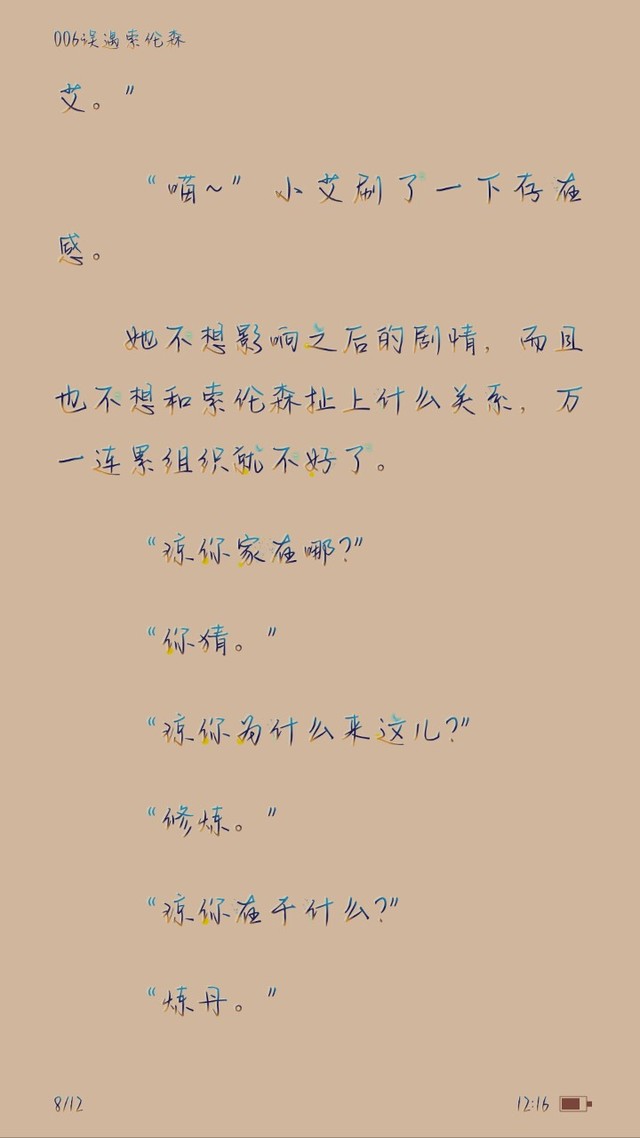 006误遇索伦森
艾。”
“喵~” 小艾刷了一下存在
感。
她不想影响之后的剧情，而且
也不想和索伦森扯上什么关系，万
一连累组织就不好了。
“琼你家在哪?”
“你猜。”
“琼你为什么来这儿?”
“修炼。”
“琼你在干什么?”
“炼丹。”
8/12
12:16